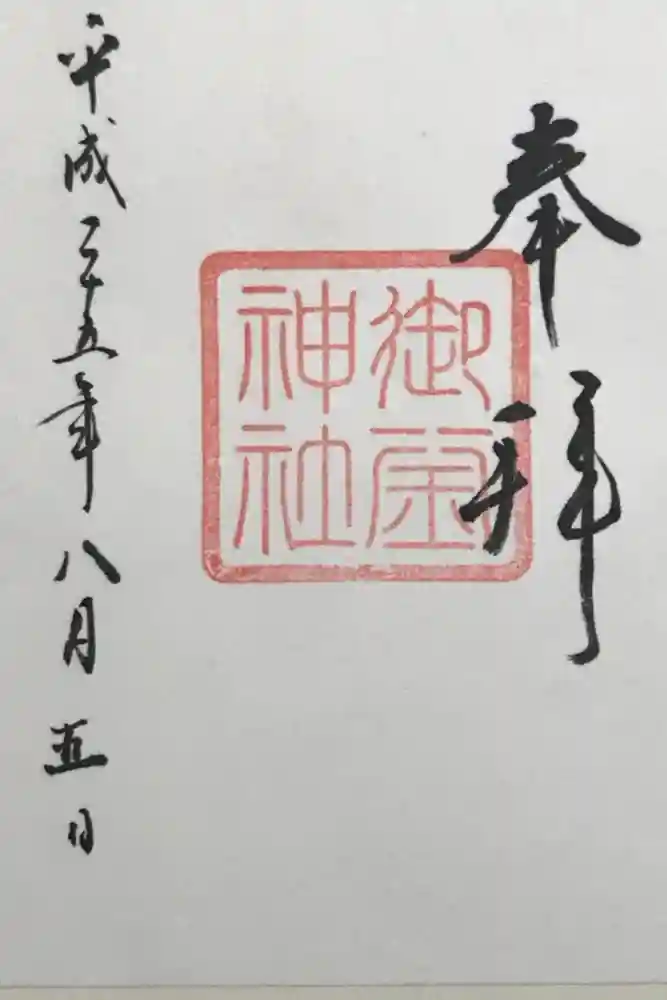 奉拝
御
神社
平成二十五年八月五日